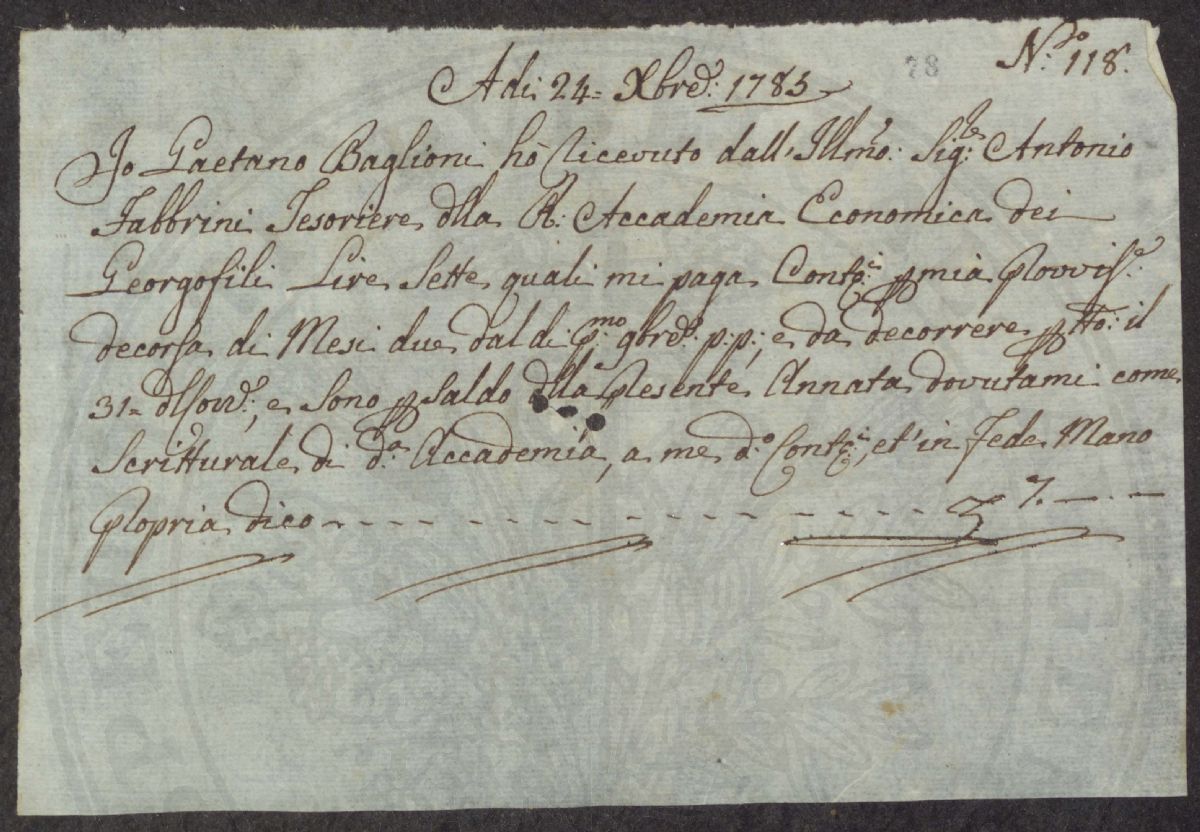 78
N.ro 118.
A di 24= Xbre. 1785
Io Gaetano Baglioni hò Ricevuto dall'Illmo: Sig.re Antonio
Fabbrini Tesoriere dlla R: Accademia Economica dei
Georgofili Lire Sette quali mi paga Cont.i p mia Provvis.e
decorsa di Mesi due dal di p.mo 9bre. p.p.; e da decorrere p tto: il
31= d, e Sono p Saldo dlla Presente Annata dovutami come
Scritturale di d.a Accademia, a me d.o Cont.i, et in Fede Mano
Propria dico - - - - - - - - - - - - - - - £ 7. — . —